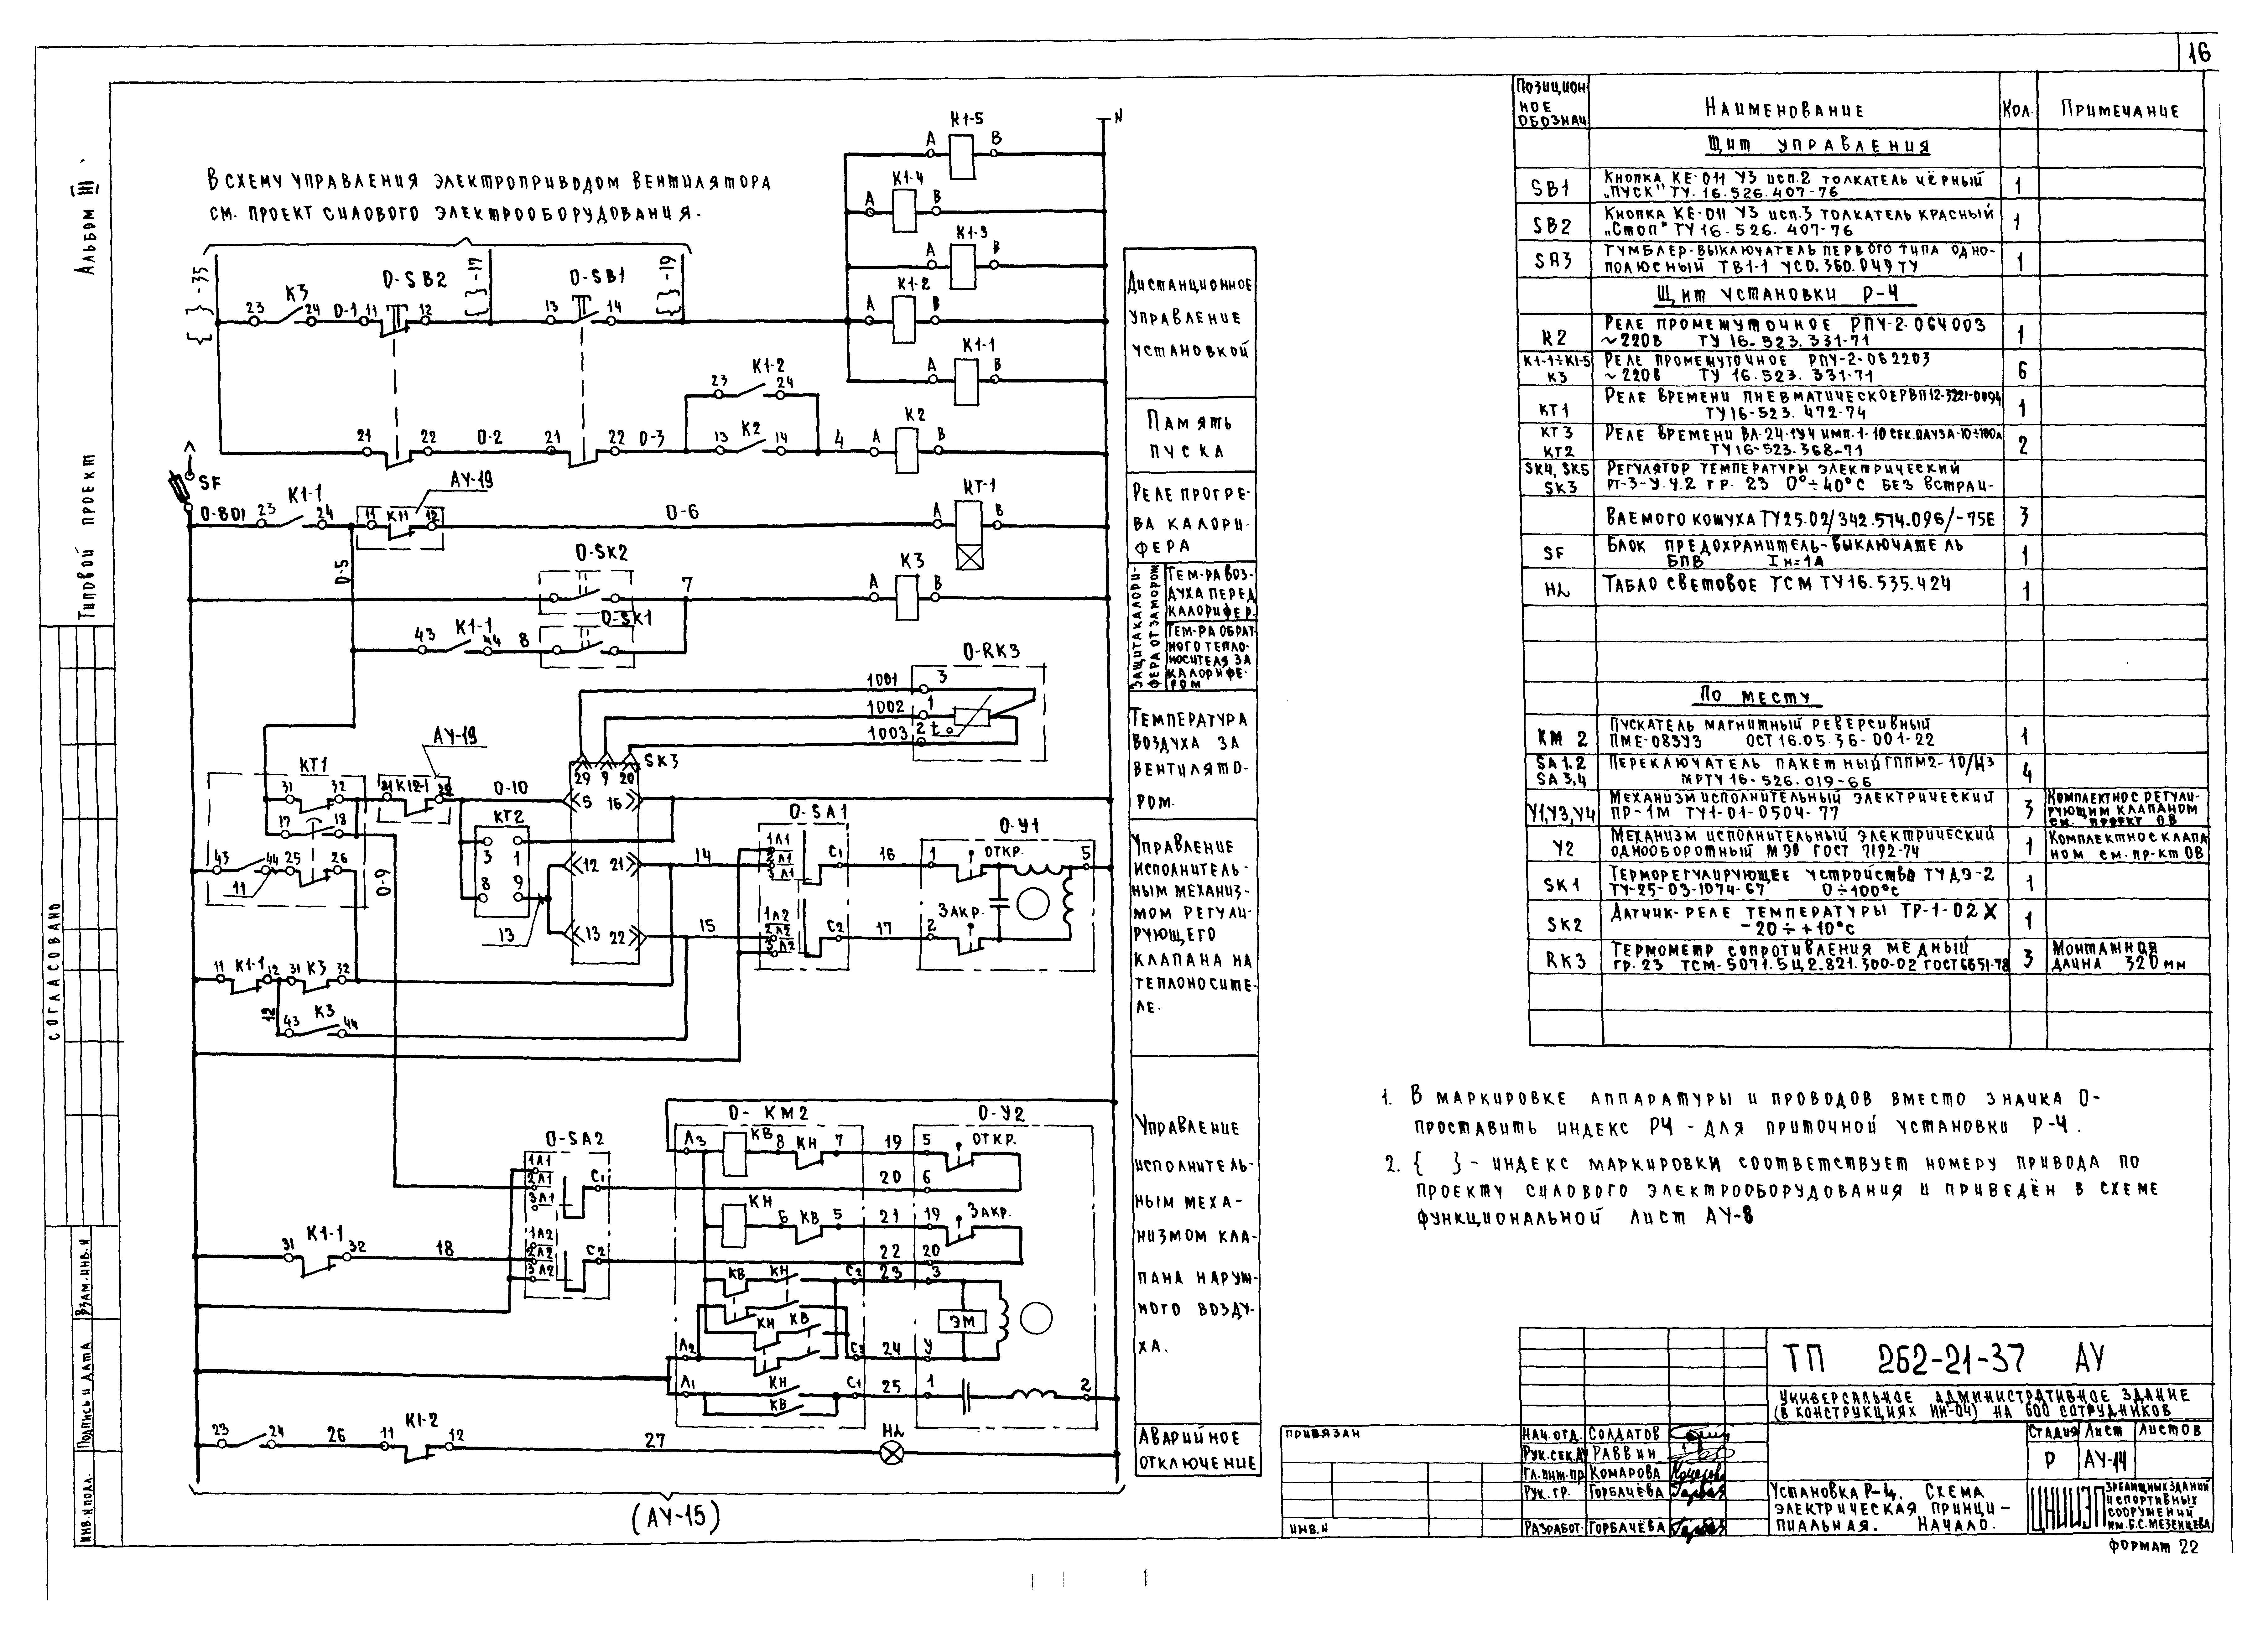 16
Альбом III
Типовой проект
Согласовано
Взам.инв.н
Подпись и дата
Инв.н подл.
В схему управления электроприводом вентилятора
см. проект силового электрооборудования.
К1-5
N
А В
К1-4
А В
К1-3
А В
К1-2
А В
К1-1
А В
{ }-35
О-SB2
{ }-17
О-SB1
{ }-19
23 К3 24 О-1 11 12 13 14
К1-2
23 24
21 22 О-2 21 22 О-3 13 К2 14 4 А К2 В
SF
АУ-19
О-801 23 К1-1 24 11 К11 12 О-6 А КТ-1 В
О-5
О-SK2
7 А К3 В
43 К1-1 44 8 О-SK1
О-RK3
1001 3
1002 1
1003 2 t°
АУ-19
КТ1
SK3
29 9 20
31 32 К12-1 О-10 5 16
17 18 КТ2
3 1
8 9
О-SA1
О-У1
43 44 25 26 О-9 12 21 14
11
1Л1
2Л1
3Л1
С1 16 1 ОТКР. 5
1Л2
2Л2
3Л2
С2 17 2 ЗАКР.
13 13 22 15
11 К1-1 12 31 К3 32
12 43 К3 44
О-SA2
О-КМ2
О-У2
Л3 КВ 8 КН 7 19 5 ОТКР.
20 6
КН 6 КВ 5 21 19 ЗАКР.
22 20
1Л1
2Л1
3Л1
С1
1Л2
2Л2
3Л2
С2
31 К1-1 32 18
КВ КН С2 23 3
КН КВ
ЭМ
Л2 С3 24 У
Л1 КН С1 25 1 2
КВ
23 24 26 11 К1-2 12 27 HL
(АУ-15)
Дистанционное
управление
установкой
Память
пуска
Реле прогре-
ва калори-
фера
Защита калори-
фера от заморож
Тем-ра воз-
духа перед
калорифер.
Тем-ра обрат-
ного тепло-
носителя за
калорифе-
ром
Температура
воздуха за
вентилято-
ром.
Управление
исполнитель-
ным механиз-
мом регули-
рующего
клапана на
теплоносите-
ле.
Управление
исполнитель-
ным меха-
низмом кла-
пана наруж-
ного возду-
ха.
Аварийное
отключение
Позицион-
ное
обознач. Наименование Кол. Примечание
Щит управления
SB1 Кнопка КЕ-011 У3 исп.2 толкатель чёрный
„Пуск" ТУ.16.526.407-76 1
SB2 Кнопка КЕ-011 У3 исп.3 толкатель красный
„Стоп" ТУ16.526.407-76 1
SA3 Тумблер-выключатель первого типа одно-
полюсный ТВ1-1 УСО.360.049ТУ 1
Щит установки Р-4
К2 Реле промежуточное РПУ-2-064003
~220в ТУ 16.523.331-71 1
К1-1÷К1-5
К3 Реле промежуточное РПУ-2-062203
~220в ТУ 16.523.331-71 6
КТ1 Реле времени пневматическое РВП12-3221-0094
ТУ16-523.472-74 1
КТ3
КТ2 Реле времени ВЛ-24-1У4 имп.1-10сек.пауза-10÷100с
ТУ16-523.368-71 2
SK4, SK5
SK3 Регулятор температуры электрический
рт-3-У.У.2 гр. 23 0°÷40°С без встраи-
ваемого кожуха ТУ25.02/342.574.096/-75Е 3
SF Блок предохранитель-выключатель
БПВ Iн=1А 1
HL Табло световое ТСМ ТУ16.535.424 1
По месту
КМ 2 Пускатель магнитный реверсивный
ПМЕ-083У3 ОСТ 16.05.36-001-22 1
SA1,2
SA3,4 Переключатель пакетный ГППМ2-10/Н3
МРТУ16-526.019-66 4
У1,У3,У4 Механизм исполнительный электрический
ПР-1М ТУ1-01-0504-77 3 Комплектно с регули-
рующим клапаном
см. проект ОВ
У2 Механизм исполнительный электрический
однооборотный МЭО ГОСТ 7192-74 1 Комплектно с клапа
ном см.пр-кт ОВ
SK1 Терморегулирующее устройство ТУДЭ-2
ТУ-25-03-1074-67 0÷100°С 1
SK2 Датчик-реле температуры ТР-1-02Х
-20÷+10°С 1
RK3 Термометр сопротивления медный
гр.23 ТСМ-5071.5Ц2.821.300-02 ГОСТ6651-78 3 Монтажная
длина 320 мм
1. В маркировке аппаратуры и проводов вместо значка О-
проставить индекс Р4 - для приточной установки Р-4.
2. { }- индекс маркировки соответствует номеру привода по
проекту силового электрооборудования и приведён в схеме
функциональной лист АУ-8
Привязан
Инв.н
ТП 262-21-37 АУ
Универсальное административное здание
(в конструкциях ИИ-04) на 600 сотрудников
Нач.отд. Солдатов
Рук.сек.АУ Раввин
Гл.инж.пр Комарова
Рук.гр. Горбачёва
Разработ. Горбачёва
Стадия Лист Листов
Р АУ-14
Установка Р-4. Схема
электрическая принци-
пиальная. Начало.
ЦНИИЭП зрелищных зданий
и спортивных
сооружений
им.Б.С.Мезенцева
Формат 22